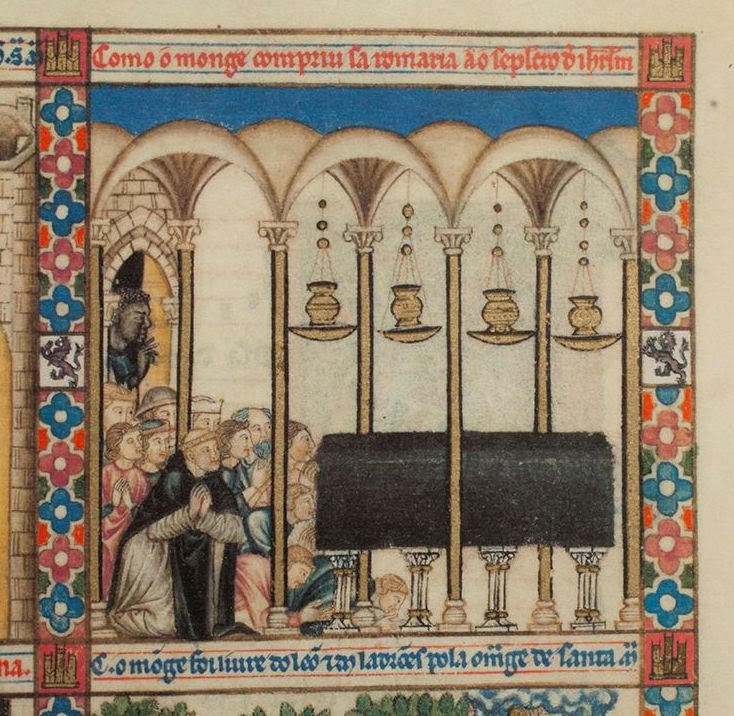 Como o monge compriu sa romaria ão sepulcro d ihrlm
na.
C.o mõge foi liure do leõ ⁊ dos ladrões pola omãge de santa mª